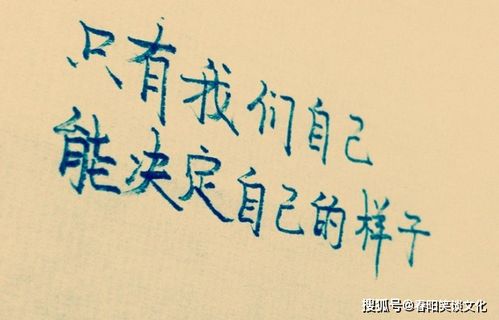 只有我们自己
能决定自己的样子
搜狐号@春阳笑谈文化